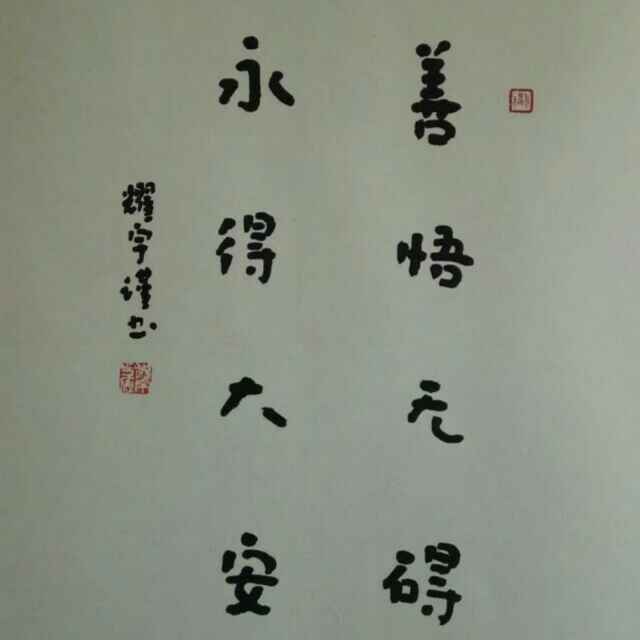 善悟无碍
永得大安
耀宇谨书